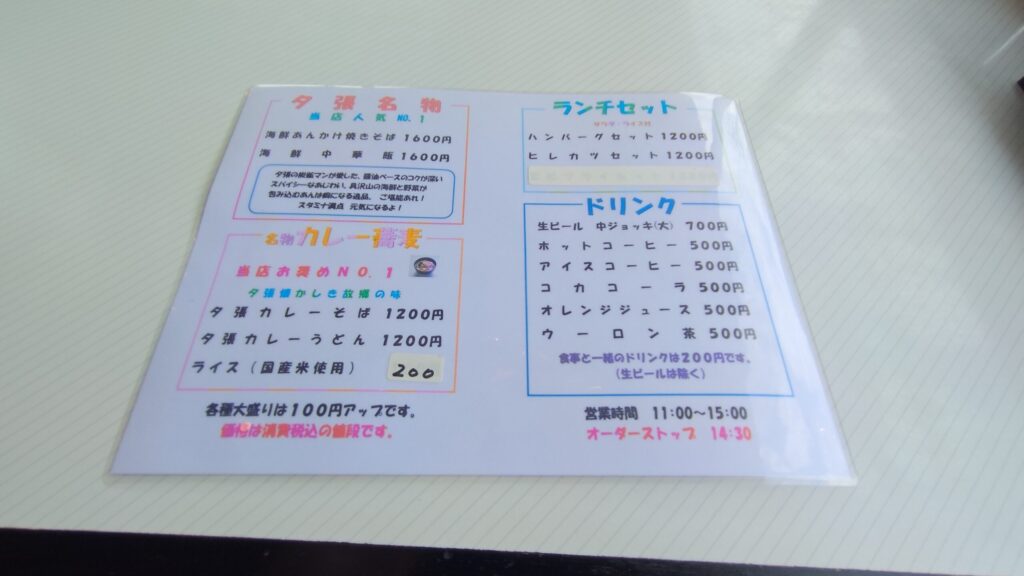 夕張名物
当店人気NO.1
海鮮あんかけ焼きそば 1600円
海鮮中華飯 1600円
夕張の炭鉱マンが愛した、醤油ベースのコクが深い
スパイシーなあじわい、具沢山の海鮮と野菜が
包み込むあんは癖になる逸品、ご堪能あれ!
スタミナ満点 元気になるよ!
名物カレー蕎麦
当店お奨めNO.1
夕張懐かしき故郷の味
夕張カレーそば 1200円
夕張カレーうどん 1200円
ライス(国産米使用) 200
各種大盛りは100円アップです。
価格は消費税込の値段です。
ランチセット
サラダ・ライス付
ハンバーグセット 1200円
ヒレカツセット 1200円
ドリンク
生ビール 中ジョッキ(大) 700円
ホットコーヒー 500円
アイスコーヒー 500円
コカコーラ 500円
オレンジジュース 500円
ウーロン茶 500円
食事と一緒のドリンクは200円です。
(生ビールは除く)
営業時間 11:00~15:00
オーダーストップ 14:30